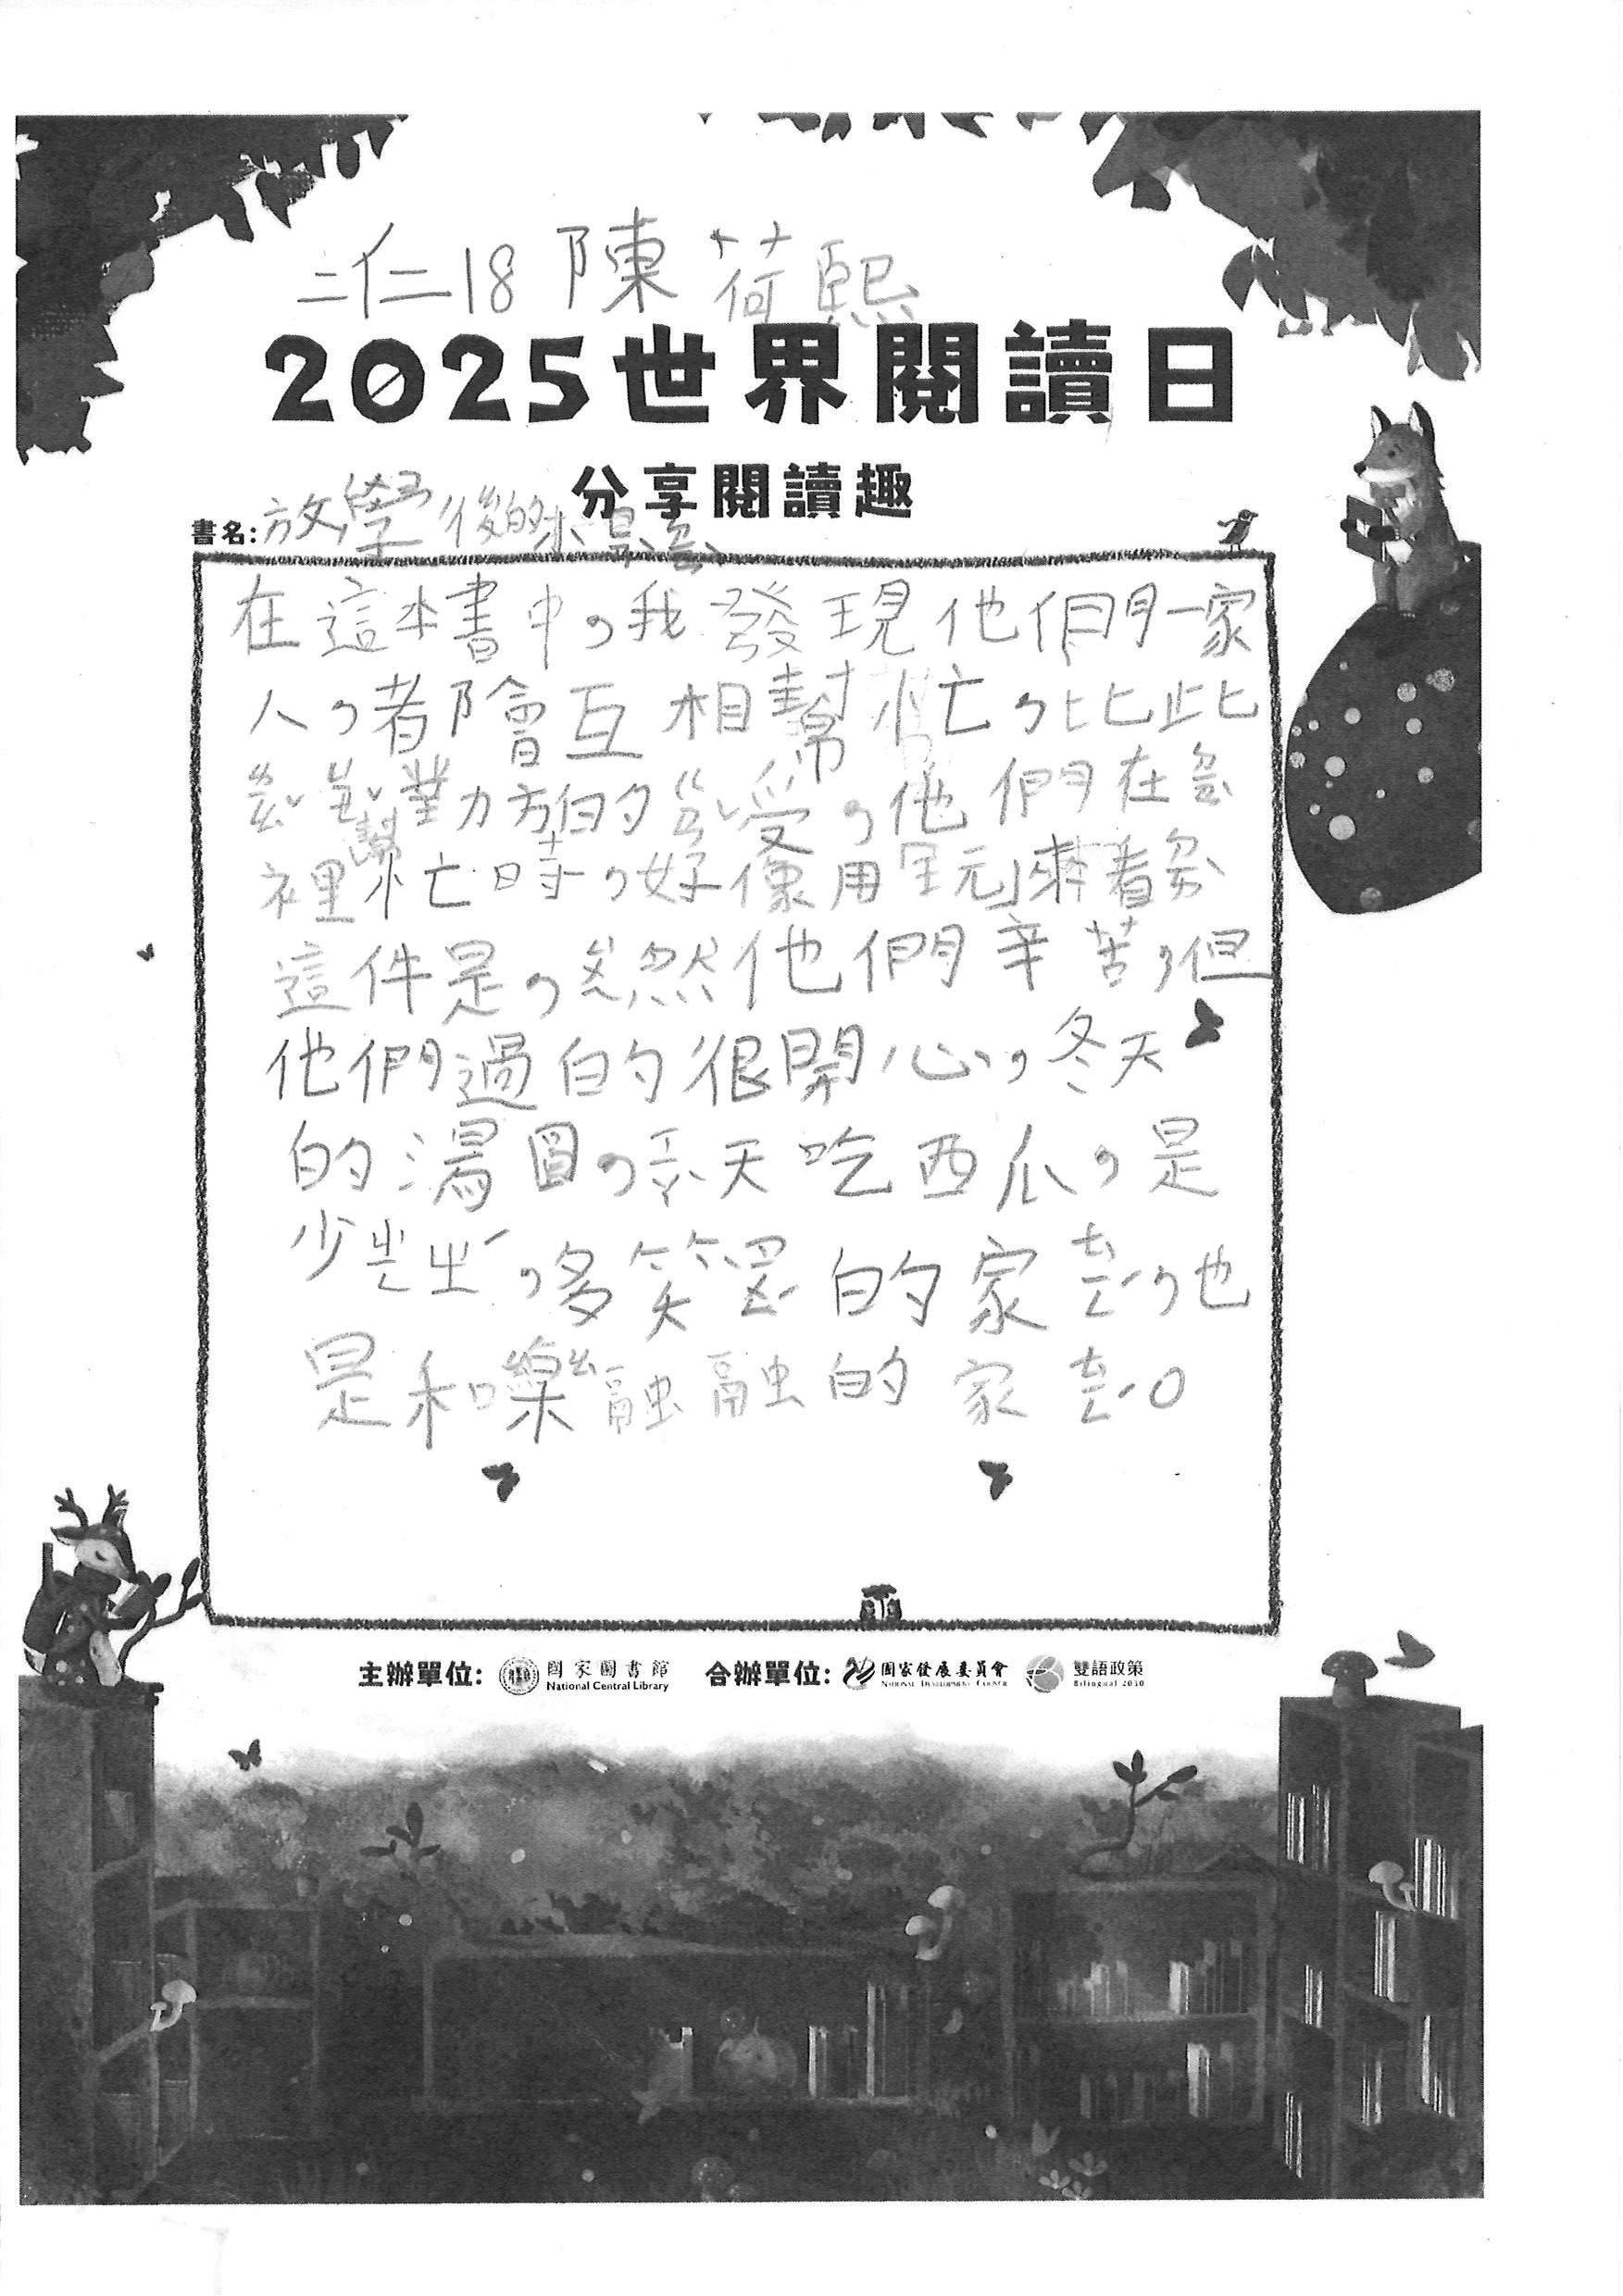 二仁18 陳荷熙
2025世界閱讀日
分享閱讀趣
書名:放學後的
在這本書中,我發現他們一家
人,者都會互相幫忙,比此
方的受,他們在
裡幫忙時,好像用「玩」來看
這件是,然他們辛苦,但
他們過的很開心,冬天
的湯圓,天吃西瓜,是
少,多笑的家ㄊㄧㄥˊ,也
是和樂融融的家ㄊㄧㄥˊ。
主辦單位: 國家圖書館 National Central Library 合辦單位: 國家發展委員會 National Development Council 雙語政策 Bilingual 2030